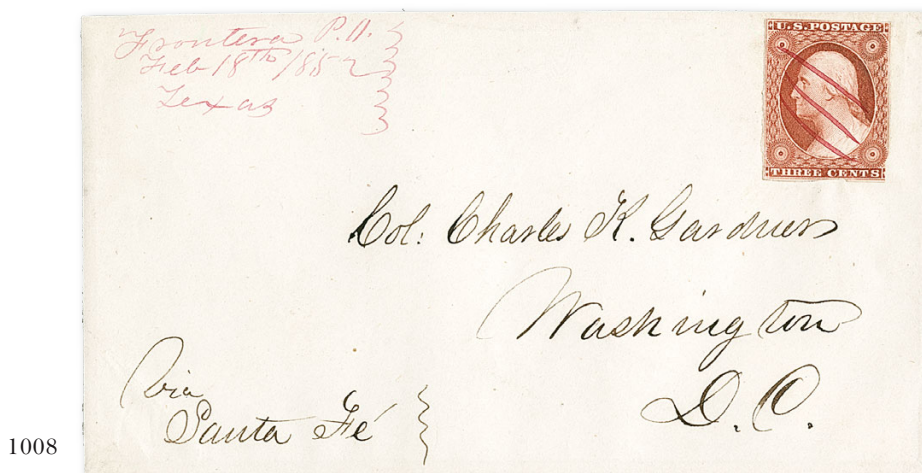 Frontera P.O.
Feb 18th 1852
Texas
U.S. POSTAGE
THREE CENTS
Col: Charles K. Gardner
Washington
D.C.
Via
Santa Fé
1008